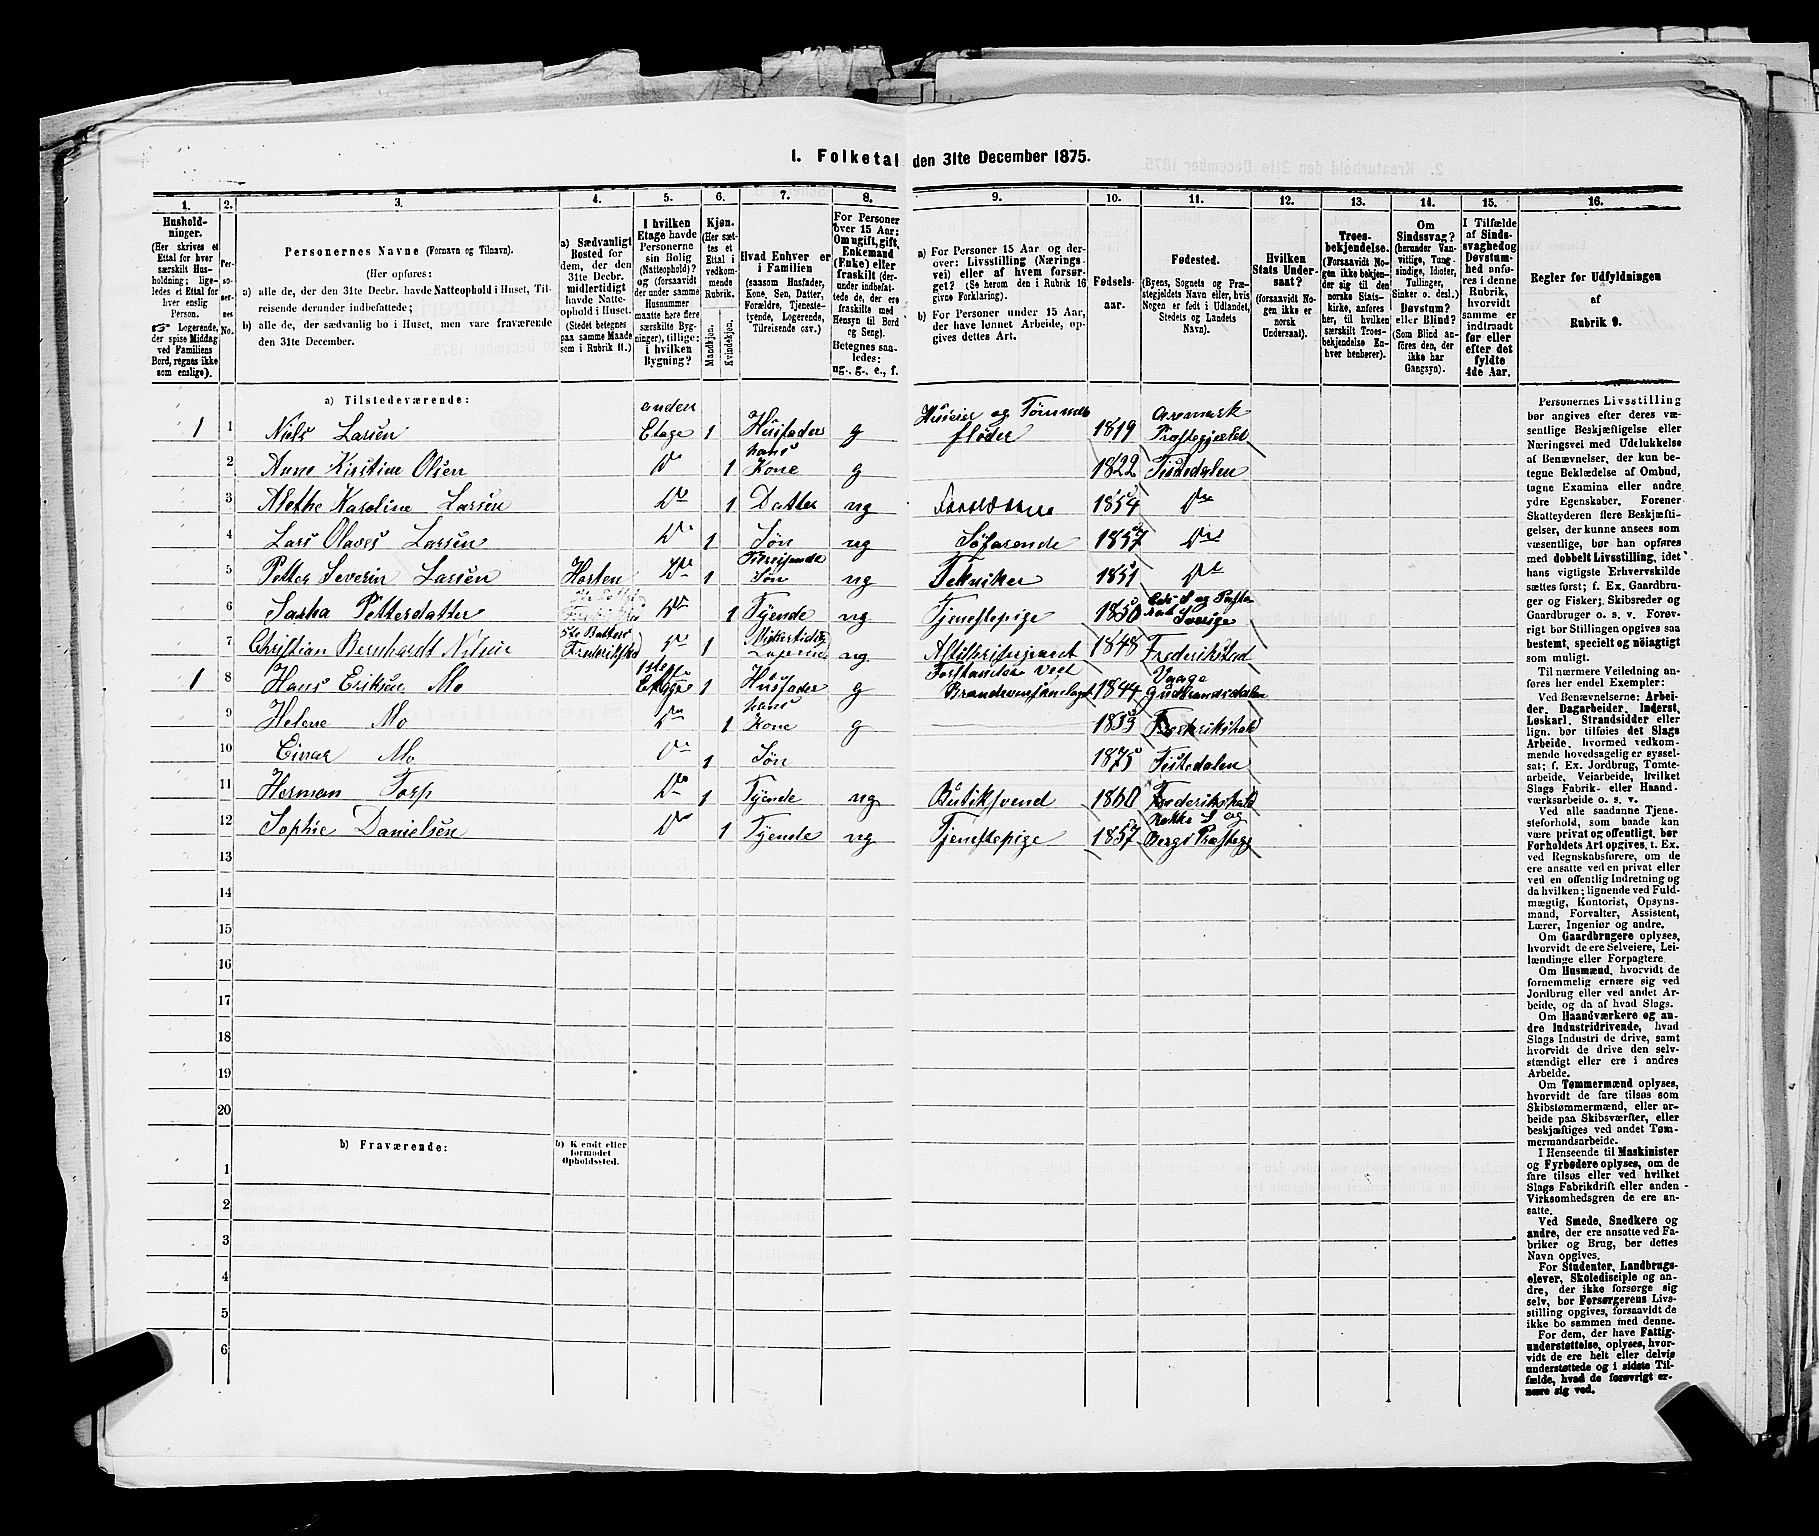 1. Folketal den 31te December 1875.
1. 2. 3. 4. 5. 6. 7. 8. 9. 10. 11. 12. 13. 14. 15. 16.
Hushold-
ninger.
(Her skrives et
Ettal for hver
særskilt Hus-
holdning; lige-
ledes et Ettal for
hver enslig
Person.
☞ Logerende,
der spise Middag
ved Familiens
Bord, regnes ikke
som enslige).
Per-
so-
ner-
nes
No.
Personernes Navne (Fornavn og Tilnavn).
(Her opføres:
a) alle de, der den 31te Decbr. havde Natteophold i Huset, Til-
reisende derunder indbefattede;
b) alle de, der sædvanlig bo i Huset, men vare fraværende
den 31te December.
a) Sædvanligt
Bosted for
dem, der den
31te Decbr.
midlertidigt
havde Natte-
ophold i Huset.
(Stedet betegnes
paa samme Maade
som i Rubrik 11.)
I hvilken
Etage havde
Personerne
sin Bolig
(Natteophold)?
og (forsaavidt
der under samme
Husnummer
maatte høre flere
særskilte Byg-
ninger), tillige:
i hvilken
Bygning?
Kjøn.
(Her sæt-
tes et
Ettal i
vedkom-
mende
Rubrik.
Mandkjøn.
Kvindekjøn.
Hvad Enhver er
i Familien
(saasom Husfader,
Kone, Søn, Datter,
Forældre, Tjeneste-
tyende, Logerende,
Tilreisende osv.)
For Personer
over 15 Aar:
Om ugift, gift,
Enkemand
(Enke) eller
fraskilt (der-
under indbefat-
tede de, der ere
fraskilte med
Hensyn til Bord
og Seng).
Betegnes saa-
ledes:
ug., g., e., f.
a) For Personer 15 Aar og der-
over: Livsstilling (Nærings-
vei) eller af hvem forsør-
get? (Se herom den i Rubrik 16
givne Forklaring).
b) For Personer under 15 Aar,
der have lønnet Arbeide, op-
gives dettes Art.
Fødsels-
aar.
Fødested.
(Byens, Sognets og Præ-
stegjeldets Navn eller, hvis
Nogen er født i Udlandet,
Stedets og Landets
Navn).
Hvilken
Stats Under-
saat?
(forsaavidt No-
gen ikke er
norsk
Undersaat).
Troes-
bekjendelse.
(Forsaavidt No-
gen ikke bekjen-
der sig til den
norske Stats-
kirke, anføres
her, til hvilken
særskilt Troes-
bekjendelse En-
hver henhører).
Om
Sindssvag?
(herunder Van-
vittige, Tung-
sindige, Idioter,
Tullinger,
Sinker o. desl.)
Døvstum?
eller Blind?
(Som Blind an-
føres den, der
ikke har
Gangsyn).
I Tilfælde
af Sinds-
svaghed og
Døvstum-
hed anfø-
res i denne
Rubrik,
hvorvidt
samme er
indtraadt
før eller
efter det
fyldte
4de Aar.
Regler for Udfyldningen
af
Rubrik 9.
a) Tilstedeværende:
1 1 Niels Larsen anden Etage 1 Husfader g Huseier og Tømmer fløder 1819 Aremark Præstegjæld
2 Anne Kirstine Olsen Do 1 hans Kone g 1822 Tistedalen
3 Alethe Karoline Larsen Do 1 Datter ug 1854 Do
4 Lars Olaves Larsen Do 1 Søn ug Søfarende 1857 Do
5 Petter Severin Larsen Horten Do 1 Søn ug Tekniker 1851 Do
6 Sasha Pettersdatter Do 1 Tyende ug Tjenestepige 1850 Sverige
7 Christian Bernhardt Nilsen Do 1 ug 1848 Frederikstad
1 8 Hans Eriksen Mo 1ste Etage 1 Husfader g Forstander ved 1844 Vaage Gudbrandsdalen
9 Helene Mo Do 1 hans Kone g Frederikshald
10 Einar Mo Do 1 Søn 1875 Tistedalen
11 Herman Torp Do 1 Tyende ug Butiksvend 1860 Frederikshald
12 Sophie Danielsen Do 1 Tyende ug Tjenestepige 1857 Rokke S og Bergs Præstegj
13
14
15
16
17
18
19
20
b) Fraværende:
b) Kjendt eller
formodet
Opholdssted.
1
2
3
4
5
6
Personernes Livsstilling
bør angives efter deres væ-
sentlige Beskjæftigelse eller
Næringsvei med Udelukkelse
af Benævnelser, der kun be-
tegne Beklædelse af Ombud,
tagne Examina eller andre
ydre Egenskaber. Forener
Skatteyderen flere Beskjæfti-
gelser, der kunne ansees som
væsentlige, bør han opføres
med dobbelt Livsstilling, idet
hans vigtigste Erhvervskilde
sættes først; f. Ex. Gaardbru-
ger og Fisker; Skibsreder og
Gaardbruger o. s. v. Forøv-
rigt bør Stillingen opgives saa
bestemt, specielt og nøiagtigt
som muligt.
Til nærmere Veiledning an-
føres her endel Exempler:
Ved Benævnelserne: Arbei-
der, Dagarbeider, Inderst,
Løskarl, Strandsidder eller
lign. bør tilføies det Slags
Arbeide, hvormed vedkom-
mende hovedsagelig er syssel-
sat; f. Ex. Jordbrug, Tomte-
arbeide, Veiarbeide, hvilket
Slags Fabrik- eller Haand-
værksarbeide o. s. v.
Ved alle saadanne Tjene-
steforhold, som baade kan
være privat og offentligt, bør
Forholdets Art opgives, t. Ex.
ved Regnskabsførere, om de
ere ansatte ved en privat eller
ved en offentlig Indretning og
da hvilken; lignende ved Fuld-
mægtig, Kontorist, Opsyns-
mand, Forvalter, Assistent,
Lærer, Ingeniør og andre.
Om Gaardbrugere oplyses,
hvorvidt de ere Selveiere, Lei-
lændinge eller Forpagtere.
Om Husmænd, hvorvidt de
fornemmelig ernære sig ved
Jordbrug eller ved andet Ar-
beide, og da af hvad Slags.
Om Haandværkere og an-
dre Industridrivende, hvad
Slags Industri de drive, samt
hvorvidt de drive den selv-
stændigt eller ere i andres
Arbeide.
Om Tømmermænd oplyses,
hvorvidt de fare tilsøs som
Skibstømmermænd, eller ar-
beide paa Skibsværfter, eller
beskjæftiges ved andet Tøm-
mermandsarbeide.
I Henseende til Maskinister
og Fyrbødere oplyses, om de
fare tilsøs eller ved hvilket
Slags Fabrikdrift eller anden
Virksomhedsgren de ere an-
satte.
Ved Smede, Snedkere og
andre, der ere ansatte ved Fa-
briker og Brug, bør dettes
Navn opgives.
For Studenter, Landbrugs-
elever, Skoledisciple og an-
dre, der ikke forsørge sig
selv, bør Forsørgerens Livs-
stilling opgives, forsaavidt de
ikke bo sammen med denne.
For dem, der have Fattig-
understøttelse, oplyses, hvor-
vidt de ere helt eller delvis
understøttede og i sidste Til-
fælde, hvad de forøvrigt er-
nære sig ved.